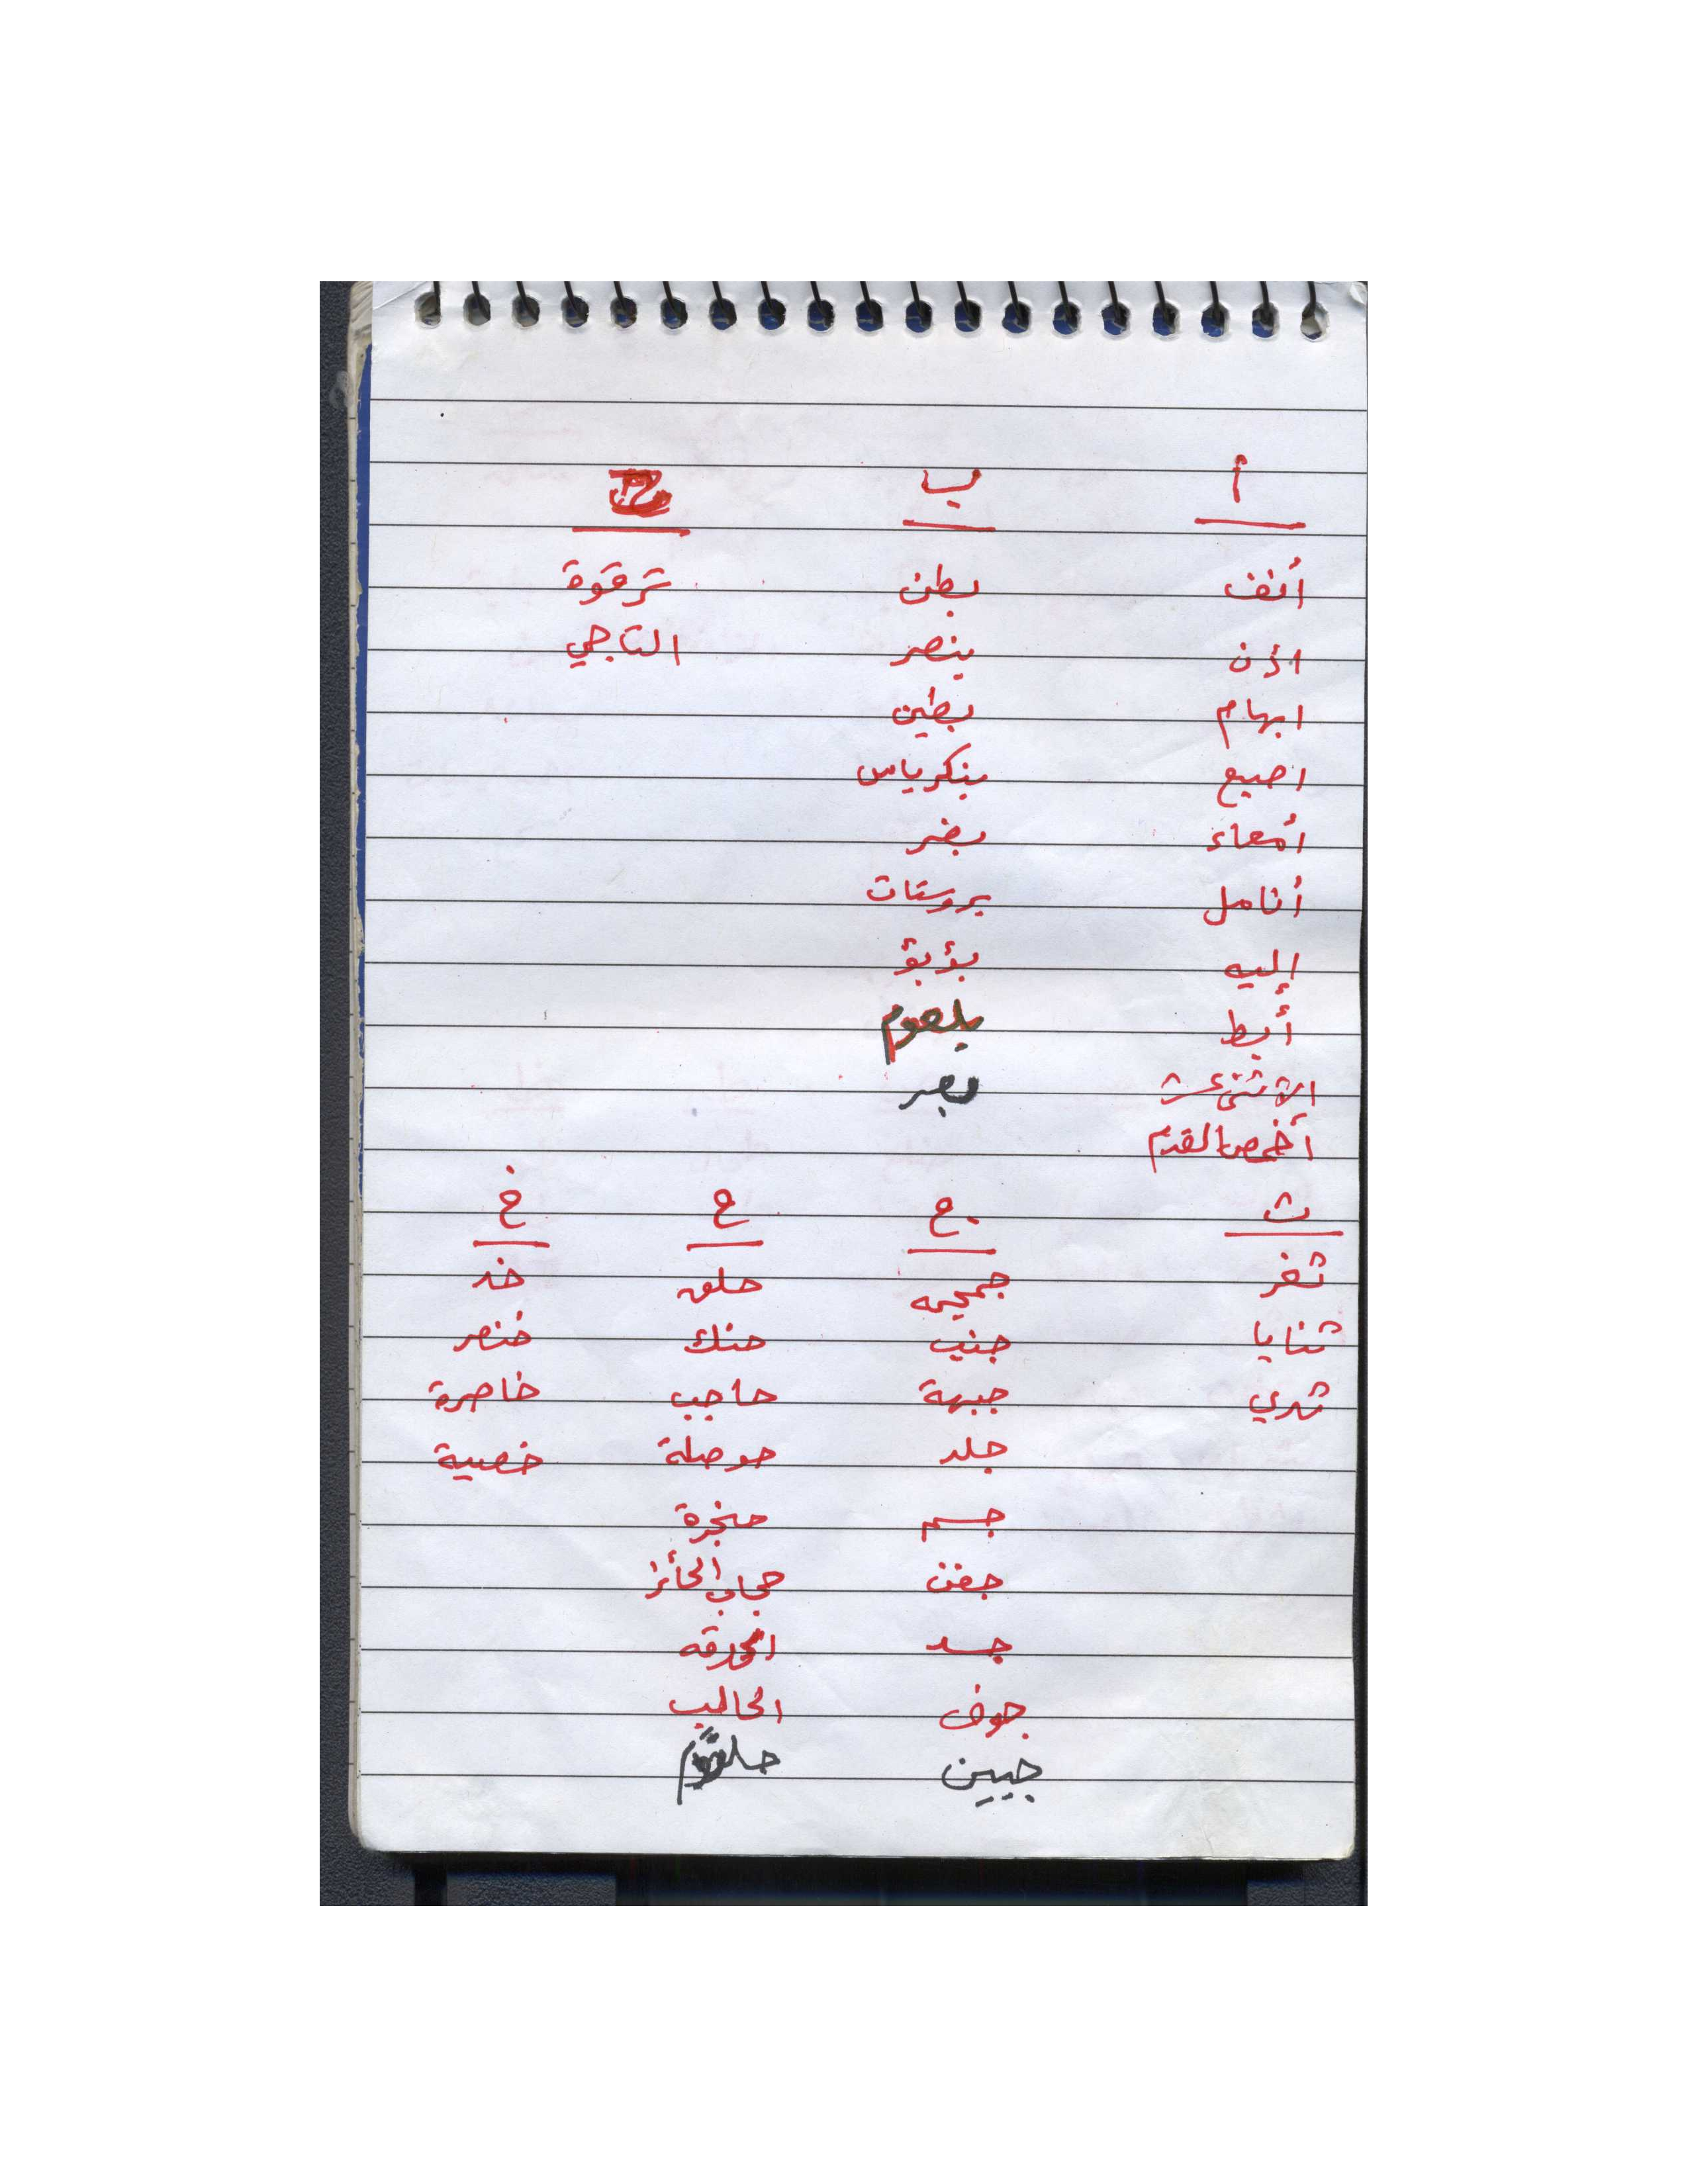 أ ب ت
أنف بطن ترقوة
اذن بنصر التاجي
ابهام بطين
اصبع بنكرياس
أمعاء بضر
أنامل بروستات
إليه بؤبؤ
أبط بلعوم
بصر
أخمص القدم
ث ج ح خ
ثغر جمجمه حلق خد
ثنايا جنب حنك خنصر
ثدي جبهة حاجب خاصرة
جلد حوصلة خصية
جسم حنجرة
جفن حجاب الحائز
جسد الحدقه
جوف الحالب
جبين حلقوم